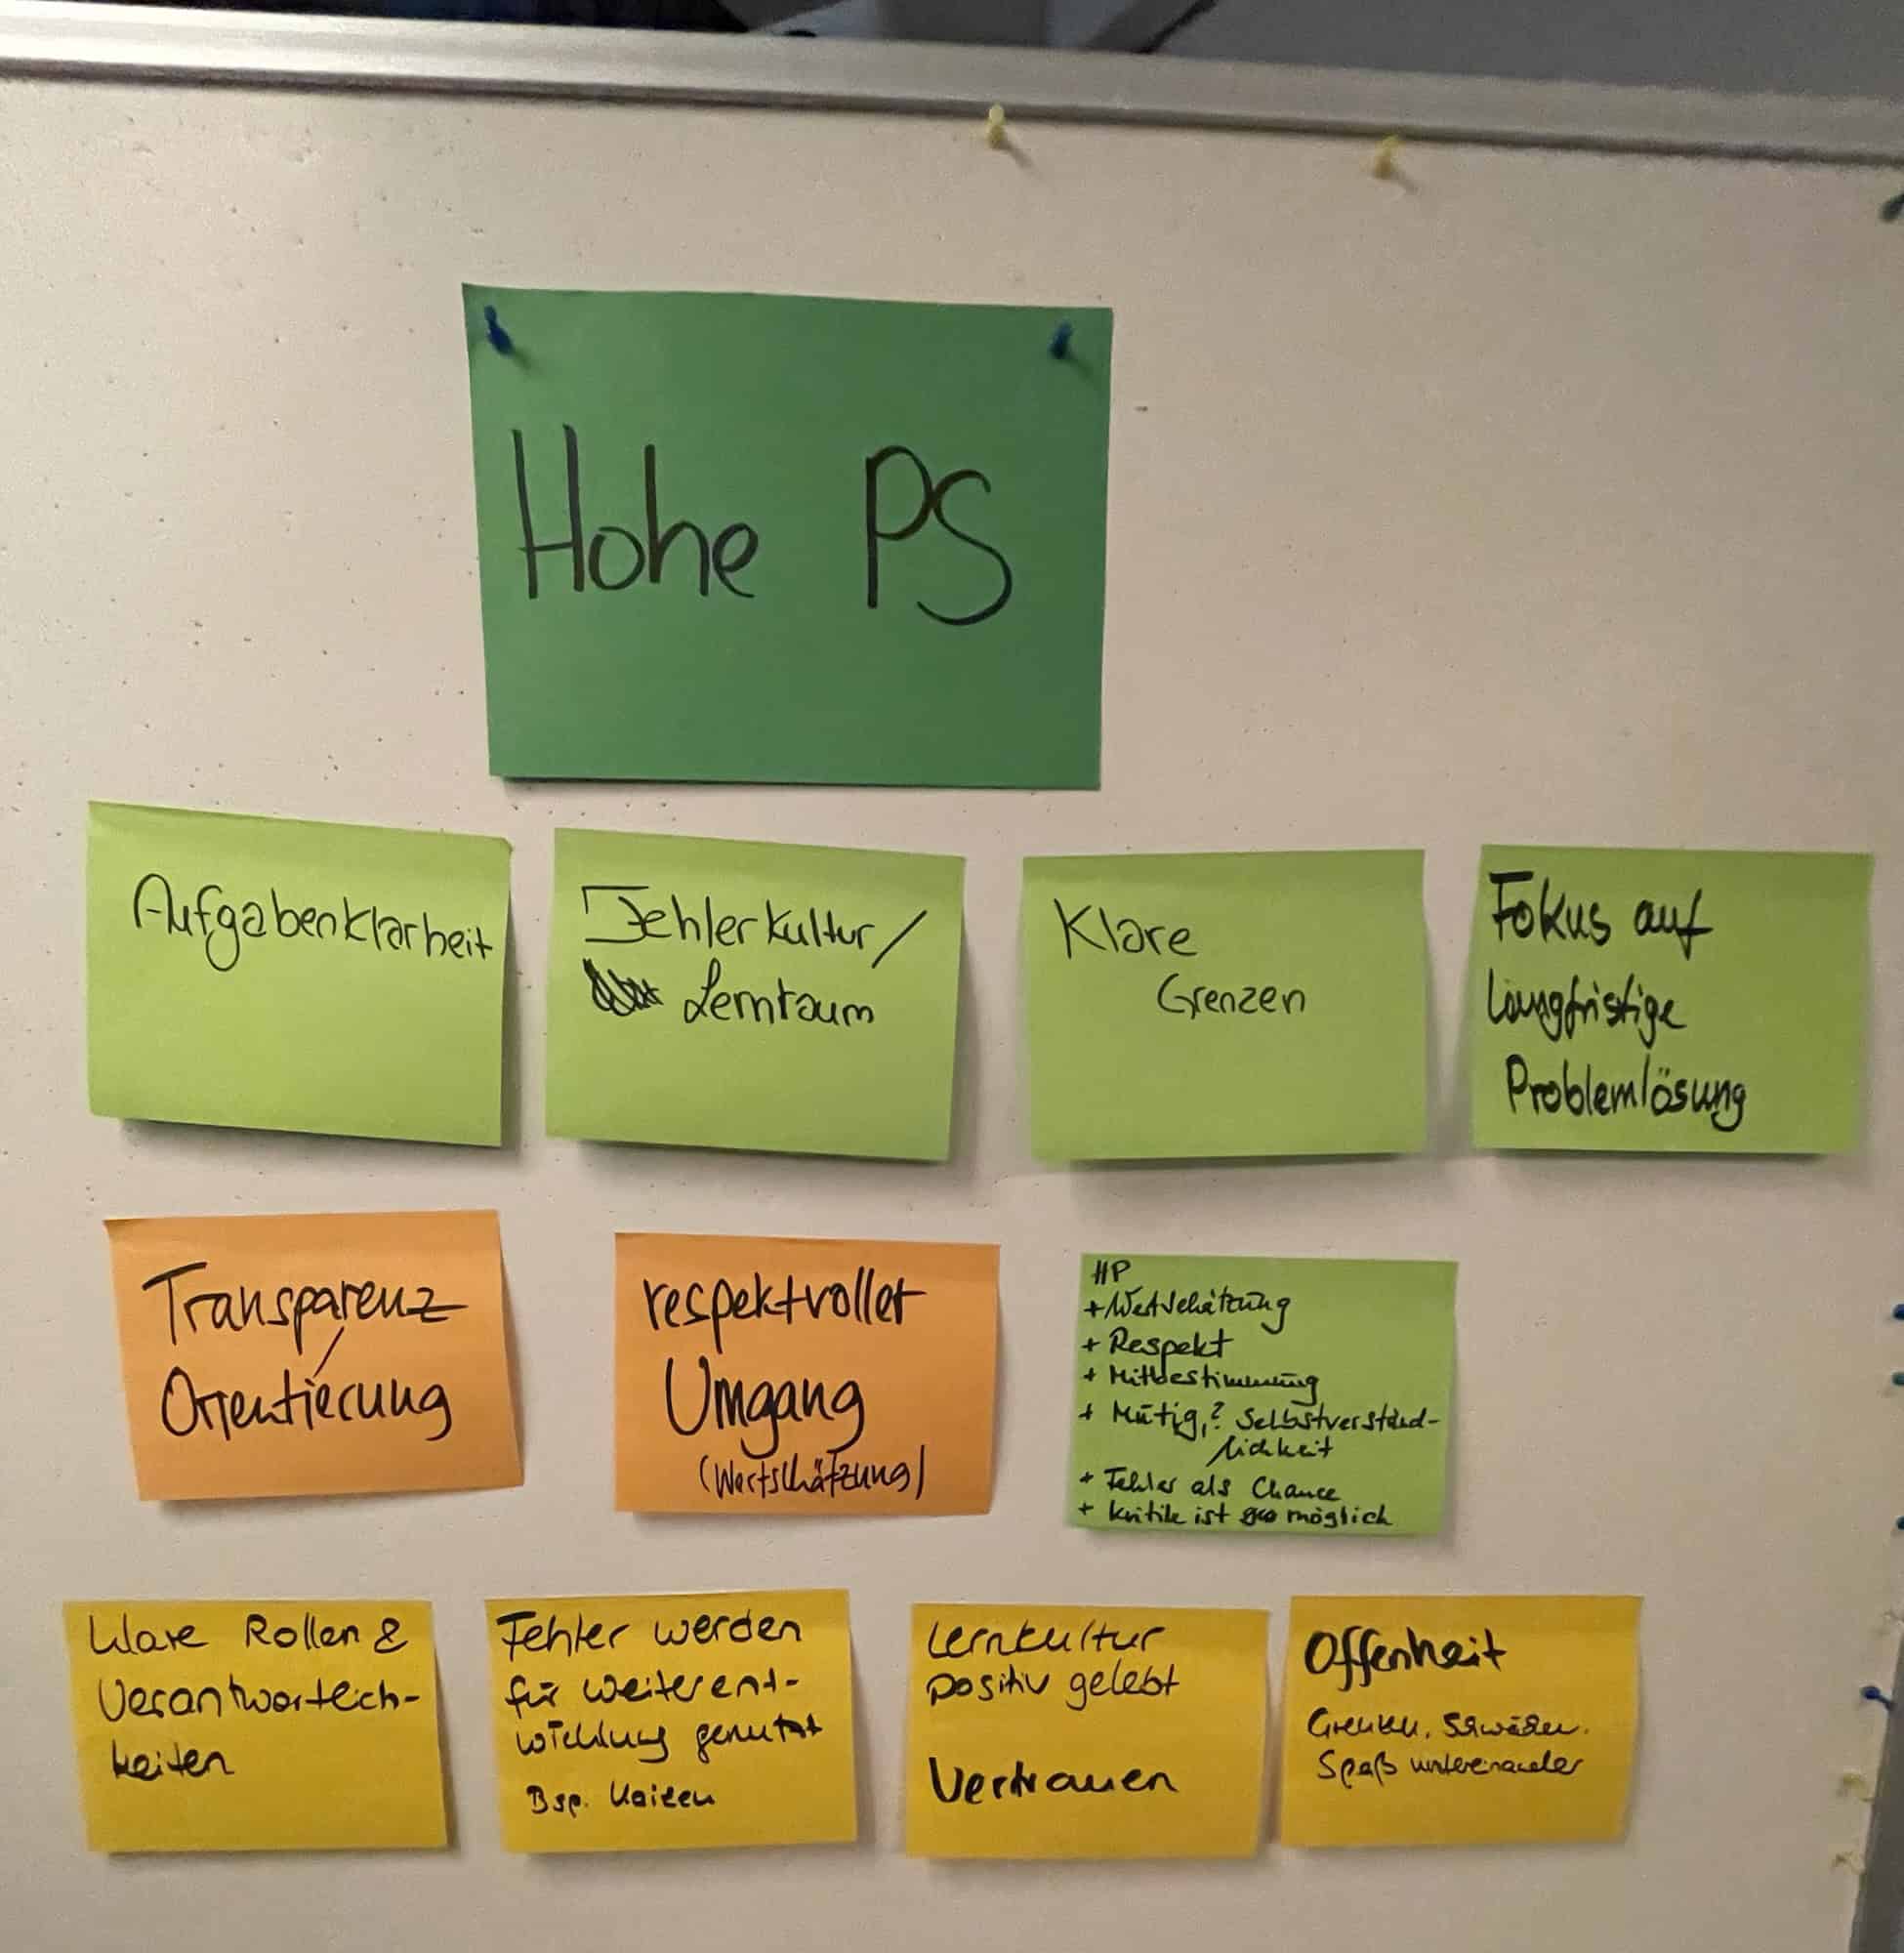 Hohe PS
Aufgabenklarheit
Fehlerkultur/
Lernraum
Klare
Grenzen
Fokus auf
langfristige
Problemlösung
Transparenz
/
Orientierung
respektvoller
Umgang
(Wertschätzung)
HP
+ Wertschätzung
+ Respekt
+ Mitbestimmung
+ Mutig,? Selbstverständ-
lichkeit
+ Fehler als Chance
+ Kritik ist möglich
Klare Rollen &
Verantwortlich-
keiten
Fehler werden
für Weiterent-
wicklung genutzt
Bsp. Kaizen
Lernkultur
positiv gelebt
Vertrauen
Offenheit
Grenzen, Schwächen.
Spaß untereinander